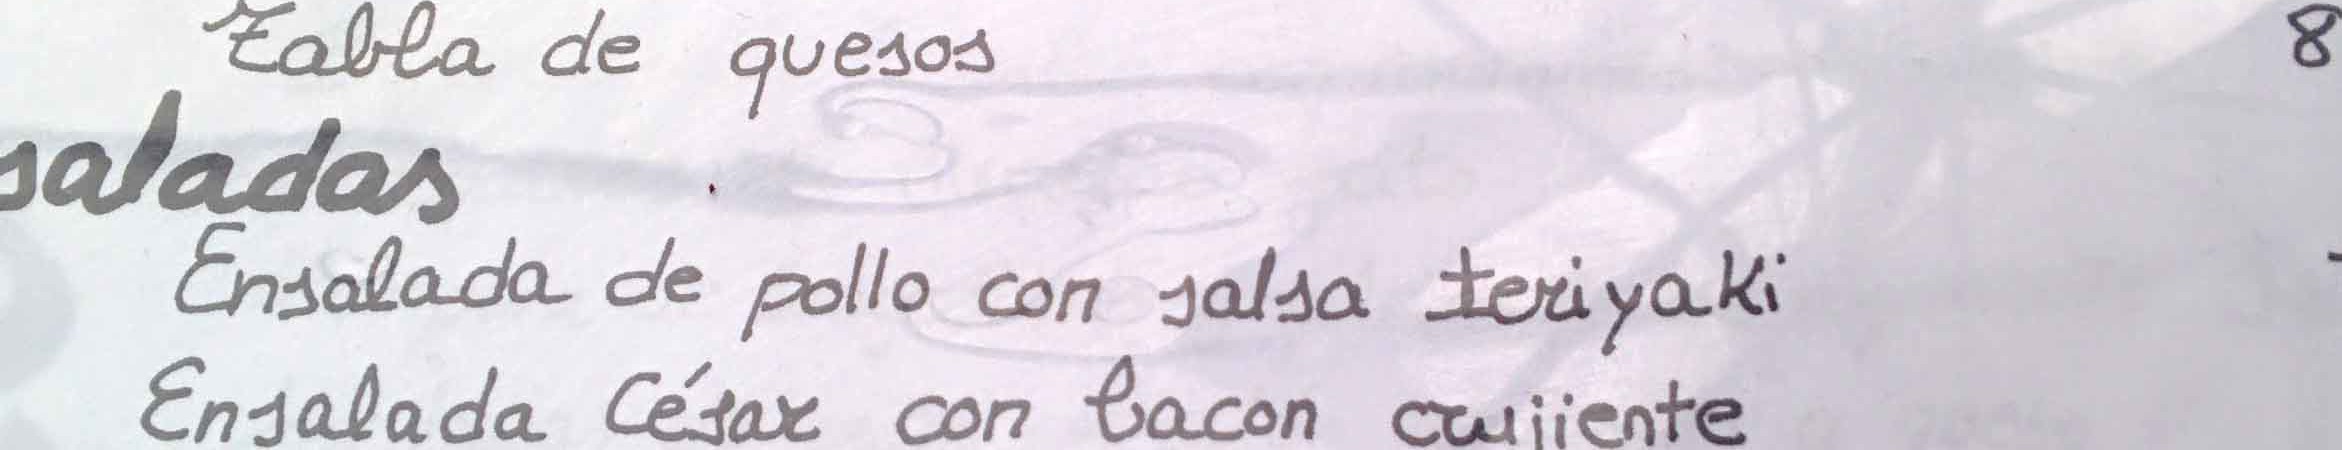 Tabla de quesos 8
saladas
Ensalada de pollo con salsa teriyaki
Ensalada César con bacon crujiente